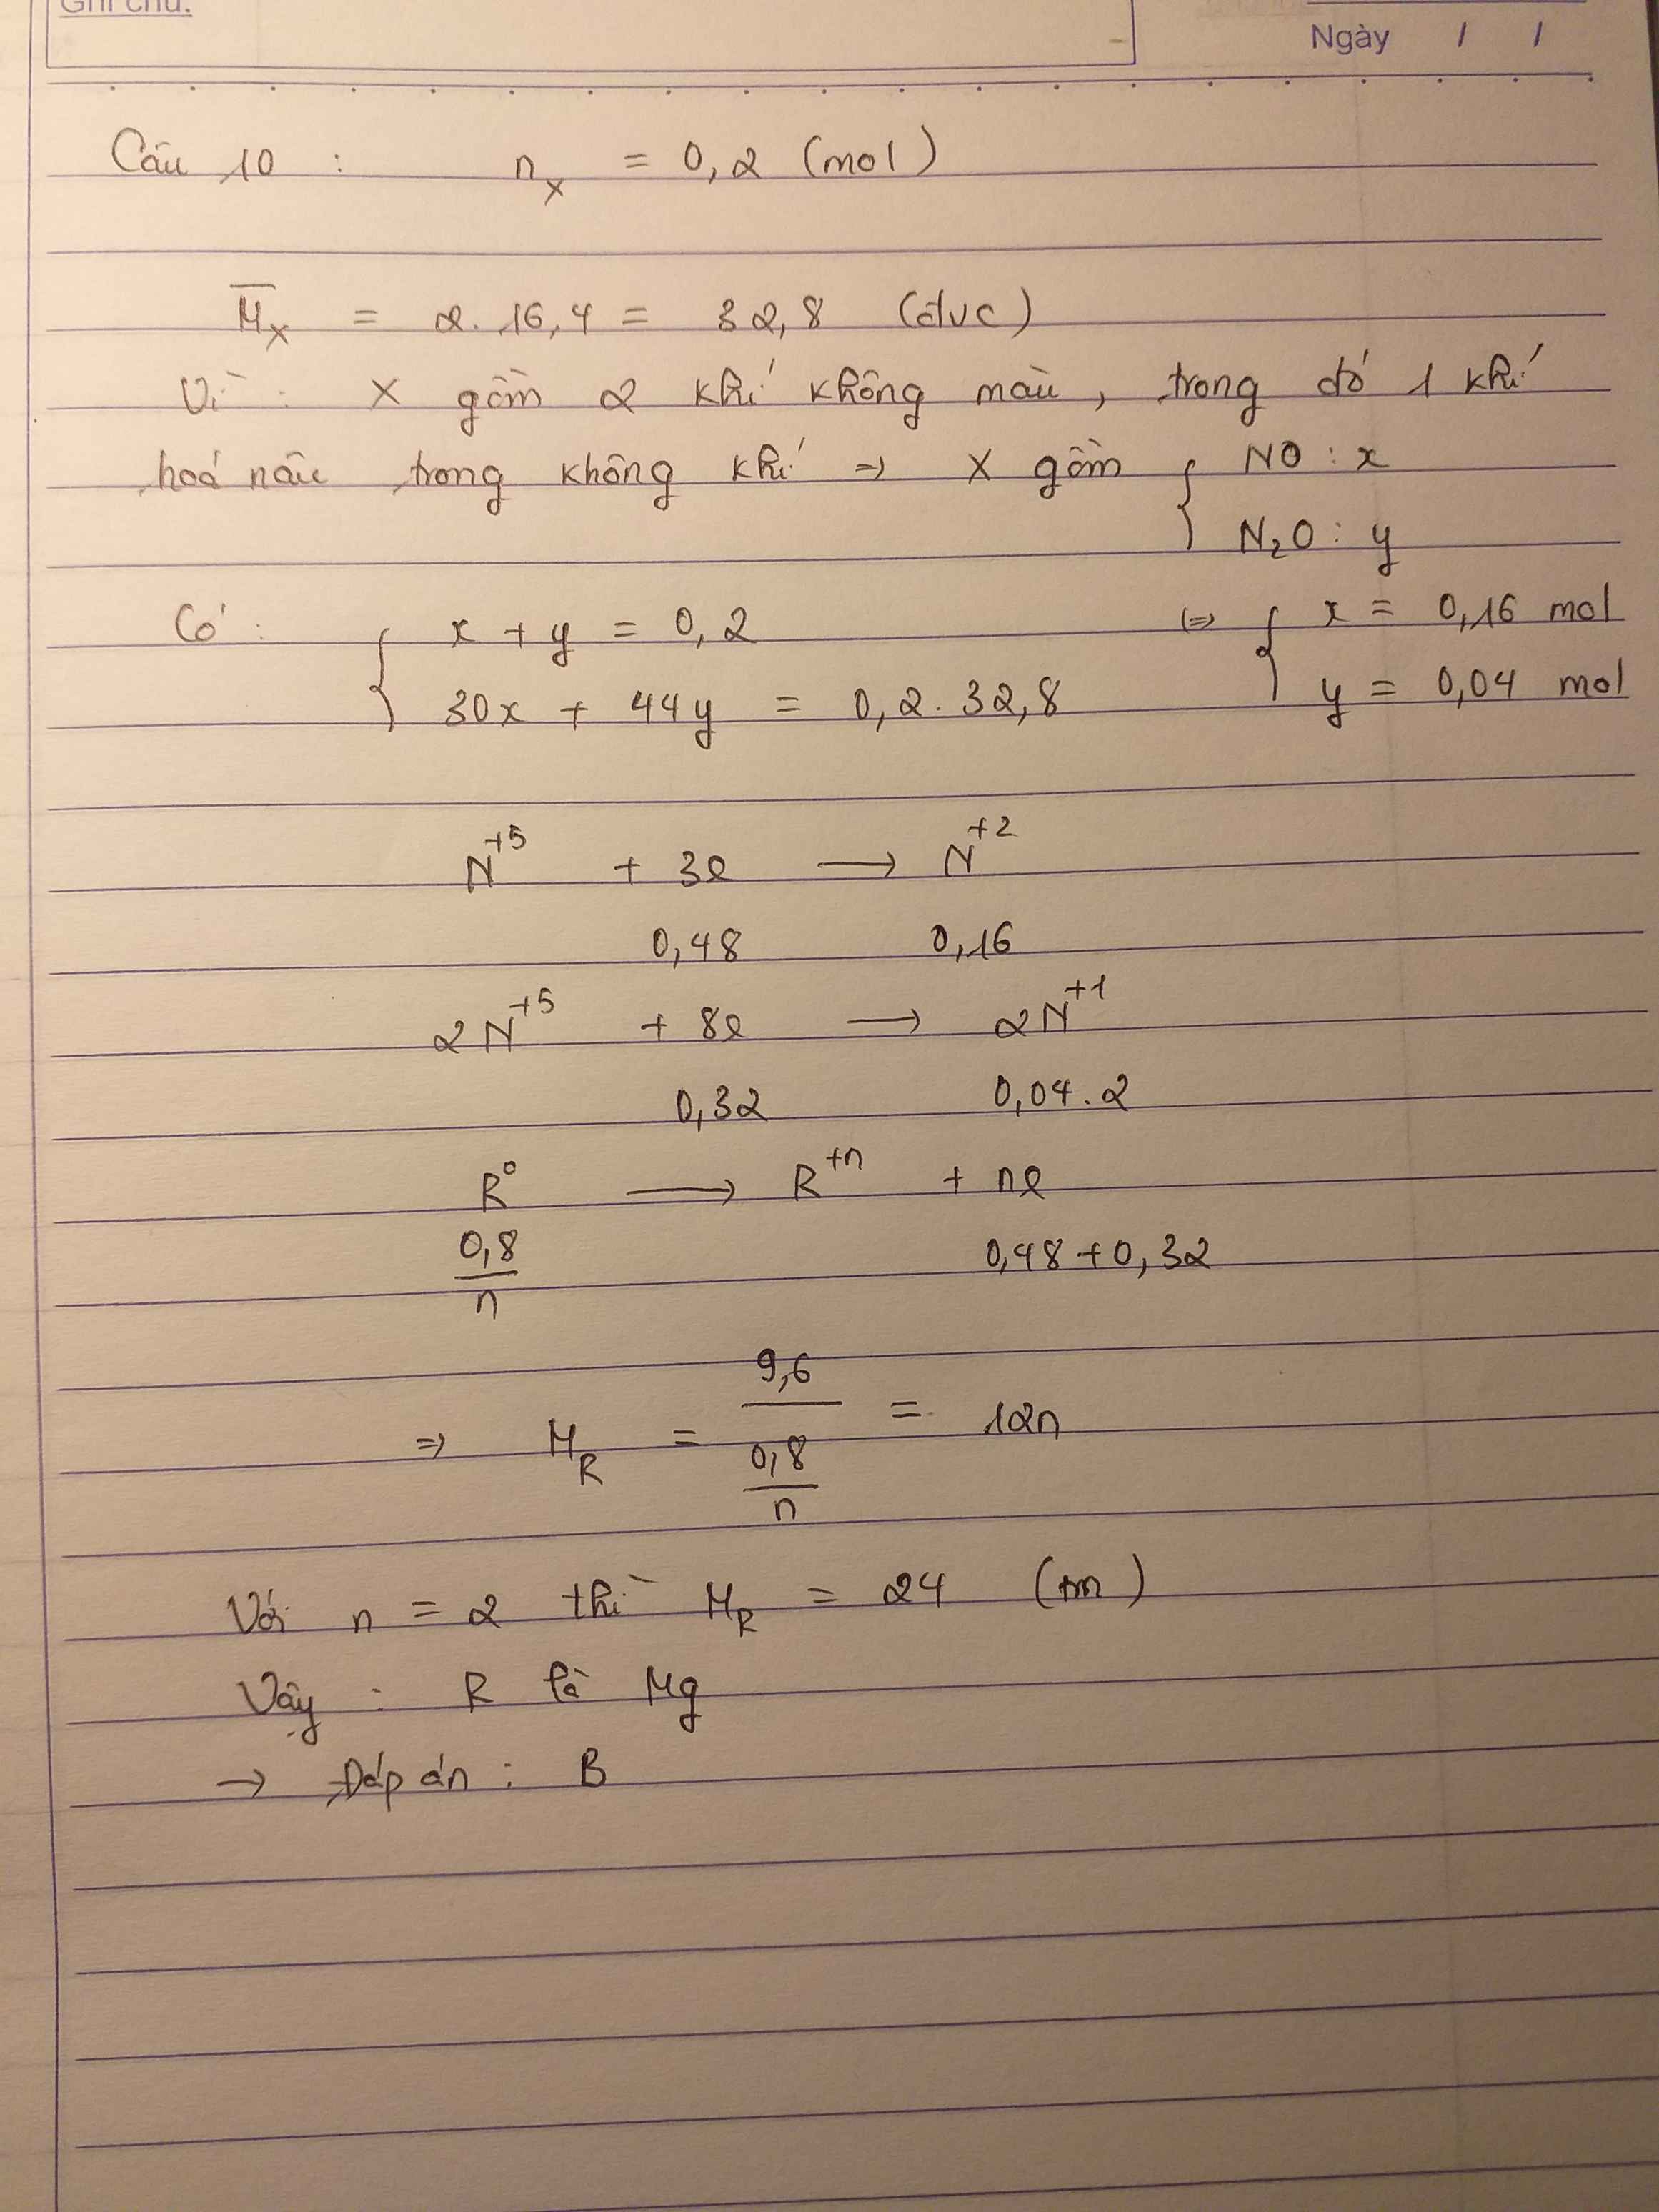 Ghi chú:
Ngày / /
Câu 10 : nₓ = 0,2 (mol)
M̅ₓ = 2. 16,4 = 32,8 (đvc)
Vì : X gồm 2 khí không màu, trong đó 1 khí
hoá nâu trong không khí => X gồm { NO : x
N₂O : y
Có : { x + y = 0,2 <=> { x = 0,16 mol
30x + 44y = 0,2. 32,8 y = 0,04 mol
N⁺⁵ + 3e → N⁺²
0,48 0,16
2N⁺⁵ + 8e → 2N⁺¹
0,32 0,04.2
R⁰ → R⁺ⁿ + ne
0,8/n 0,48+0,32
=> M_R = 9,6/(0,8/n) = 12n
Với n = 2 thì M_R = 24 (tm)
Vậy : R là Mg
→ Đáp án : B